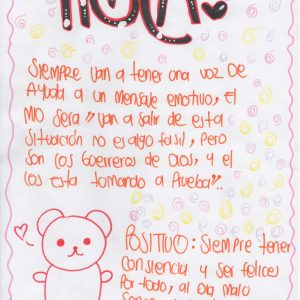 HOLA!
SIEMPRE VAN A TENER UNA VOZ DE
AYUDA A UN MENSAJE EMOTIVO, El
MIO SERA "VAN A SALIR DE ESTA
SITUACIÓN NO ES ALGO FASIL, PERO
SON LOS GUERREROS DE DIOS, Y EL
LOS ESTA TOMANDO A PRUEBA"..
POSITIVO: SIEMPRE TENER
CONSIENCIA Y SER FELICES
POR TODO, AL DIA MALO